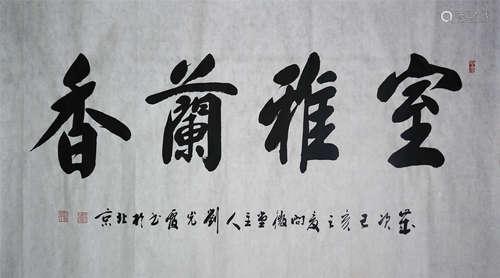 室雅蘭香
歲次己亥之夏問微堂主人劉光霞書於北京